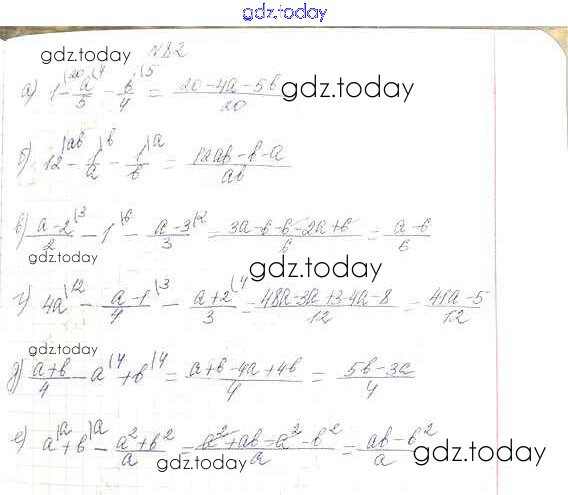 gdz.today
gdz.today
№82
а) 1|20 - a/5|4 - b/4|5 = (20-4a-5b)/20
gdz.today
б) 12|ab - 1/a|b - 1/b|a = (12ab-b-a)/ab
в) (a-2)/2|3 - 1|6 - (a-3)/3|2 = (3a-6-6-2a+6)/6 = (a-6)/6
gdz.today
gdz.today
г) 4a|12 - (a-1)/4|3 - (a+2)/3|4 = (48a-3a+3-4a-8)/12 = (41a-5)/12
gdz.today
д) (a+b)/4 - a|4 + b|4 = (a+b-4a+4b)/4 = (5b-3a)/4
е) a|a + b|a - (a²+b²)/a = (a²+ab-a²-b²)/a = (ab-b²)/a
gdz.today
gdz.today